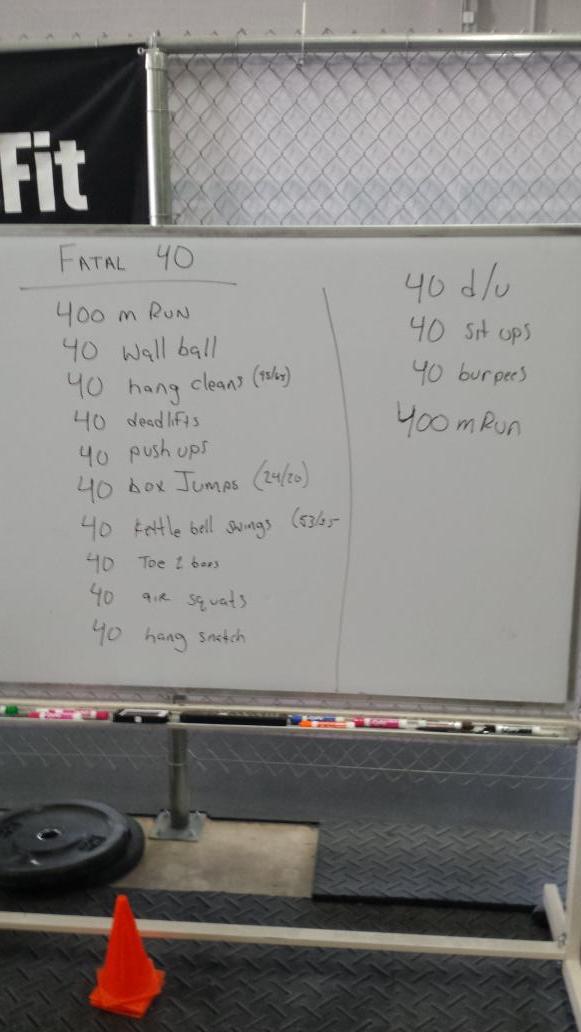 Fit
FATAL 40
400 m RUN
40 Wall ball
40 hang cleans (95/65)
40 deadlifts
40 push ups
40 box Jumps (24/20)
40 kettle bell swings (53/35
40 Toe 2 bars
40 air squats
40 hang snatch
40 d/u
40 sit ups
40 burpees
400 m Run